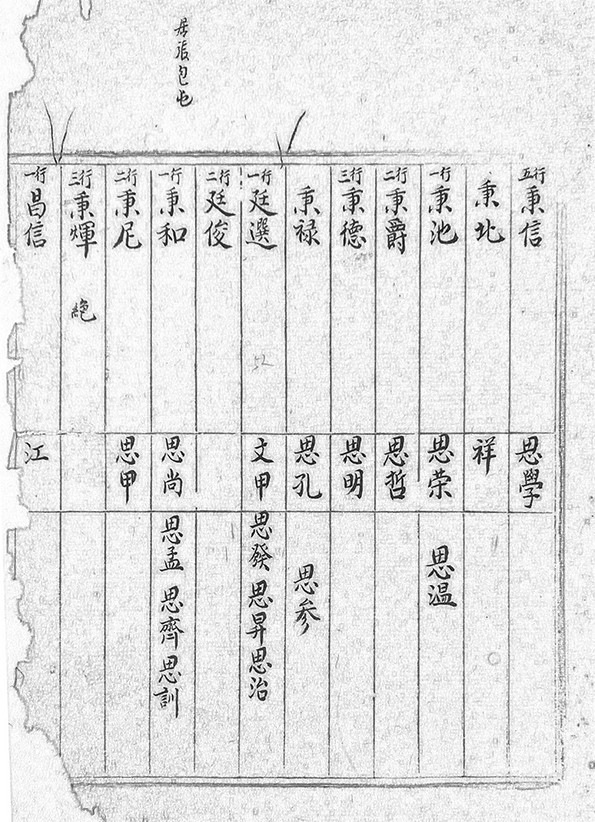 居張包屯
五行 秉信 思學
秉北 祥
一行 秉池 思荣 思温
二行 秉爵 思哲
三行 秉德 思明
秉禄 思孔 思参
一行 廷選 文甲 思發 思昇 思治
二行 廷俊
一行 秉和 思尚 思孟 思齊 思訓
二行 秉尼 思甲
三行 秉煇 絶
一行 昌信 江